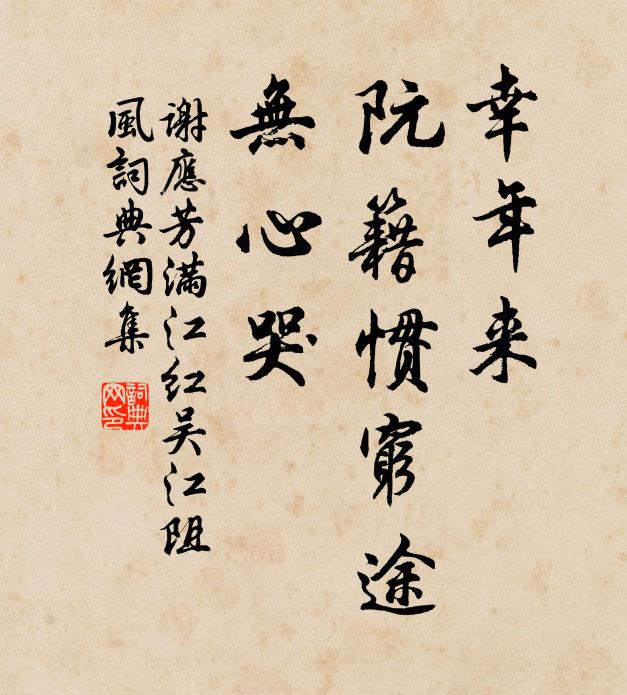 幸年来
阮籍慣窮途
無心哭
謝應芳满江红吴江阻
風詞典網集
詞典
网印